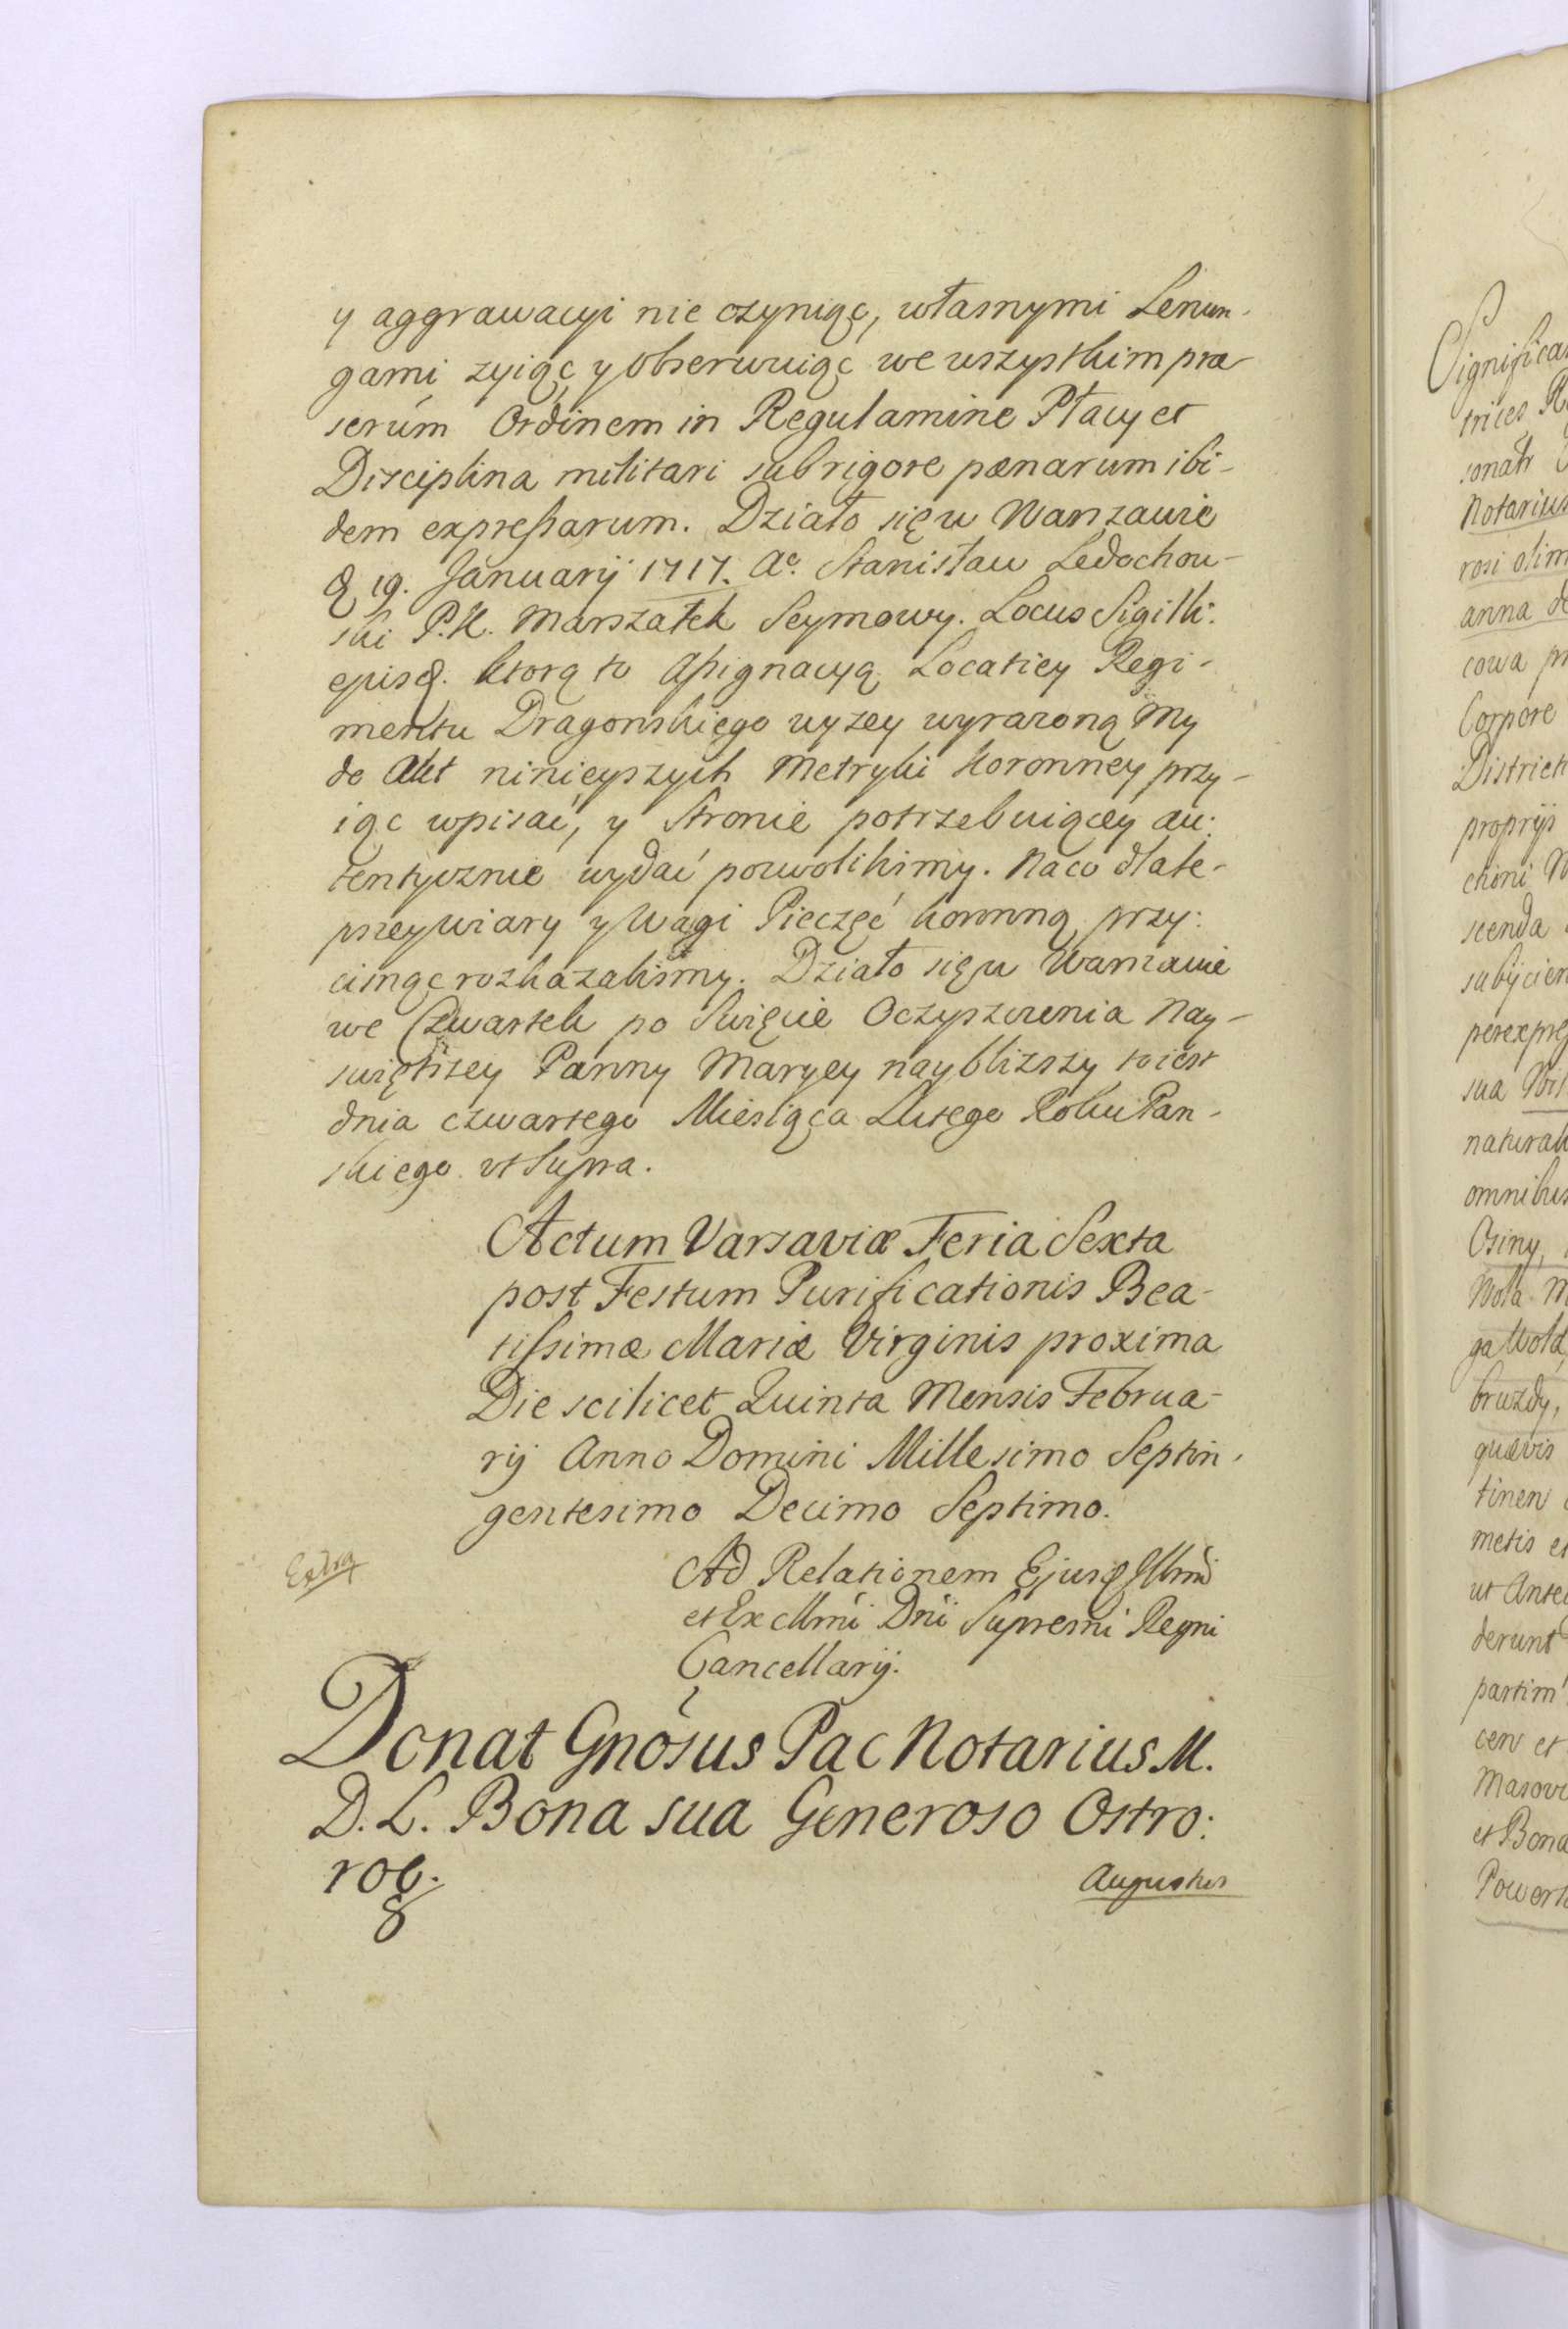 y aggrawacyi nie czyniąc, własnymi Lenun-
gami zyiąc y obserwuiąc we wszystkim præ
serům Ordinem in Regulamine Płacy et
Disciplina militari sub rigore pænarum ibi-
dem expreßarum. Działo się w Warszawie
19. Januarij 1717. Aº. Stanisław Ledochow-
ski P.K. Marszałek Seymowy. Locus Sigilli:
ktorą to Aßignacyą Locatiey Regi-
mentu Dragonskiego wyzey wyrazoną My
do Akt ninieyszych Metryki Koronney przy-
iąc wpisać, y Stronie potrzebuiącey au:
tentycznie wydać pozwolilismy. Na co dla le-
pszey wiary y Wagi Pieczęć koronną przy:
cisnąc rozkazalismy. Działo się w Warszawie
we Czwartek po Swięcie Oczyszczenia Nay-
swiętszey Panny Maryey naybliższy to iest
dnia czwartego Miesiąca Lutego Roku Pan-
skiego vt Supra.
Actum Varsaviæ Feria Sexta
post Festum Purificationis Bea-
tißimæ Mariæ Virginis proxima
Die scilicet Quinta Mensis Februa-
rij Anno Domini Millesimo Septin-
gentesimo Decimo Septimo.
Ad Relationem Ejusd Illmi
et Excllmi Dni Supremi Regni
Cancellarij.
Donat Gnosus Pac Notarius M.
D. L. Bona sua Generoso Ostro:
rog.
Augustus
Significa
trices
sonatr
Notarius
rosi olim
anna de
cowa
Corpore
District
proprijs
chini
scenda
subijcien
perexpreß
sua
natural
omnibus
Osiny,
Wola
ga Wola
bruzdy,
quævis
tinen
metis et
ut Ante
derunt
partim
cen et
Masovi
et Bona
Powers